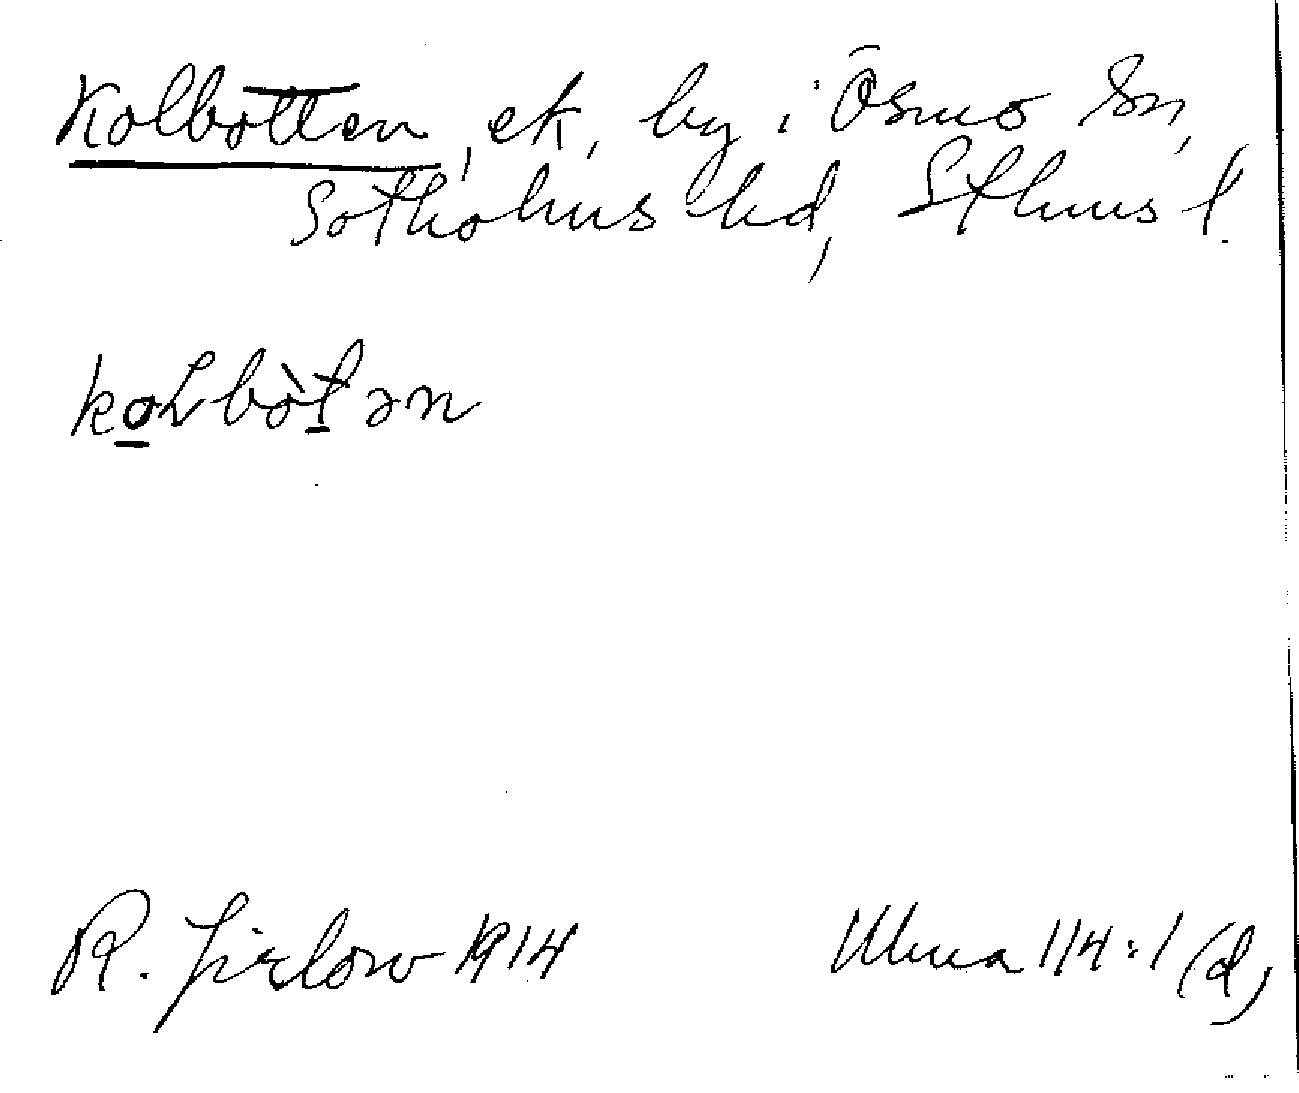 Kolbotten, ek, by i Ösmo sn,
Sotholms hd, Sthms l.
R. Jirlow 1914 Ulma 114:1 (d)